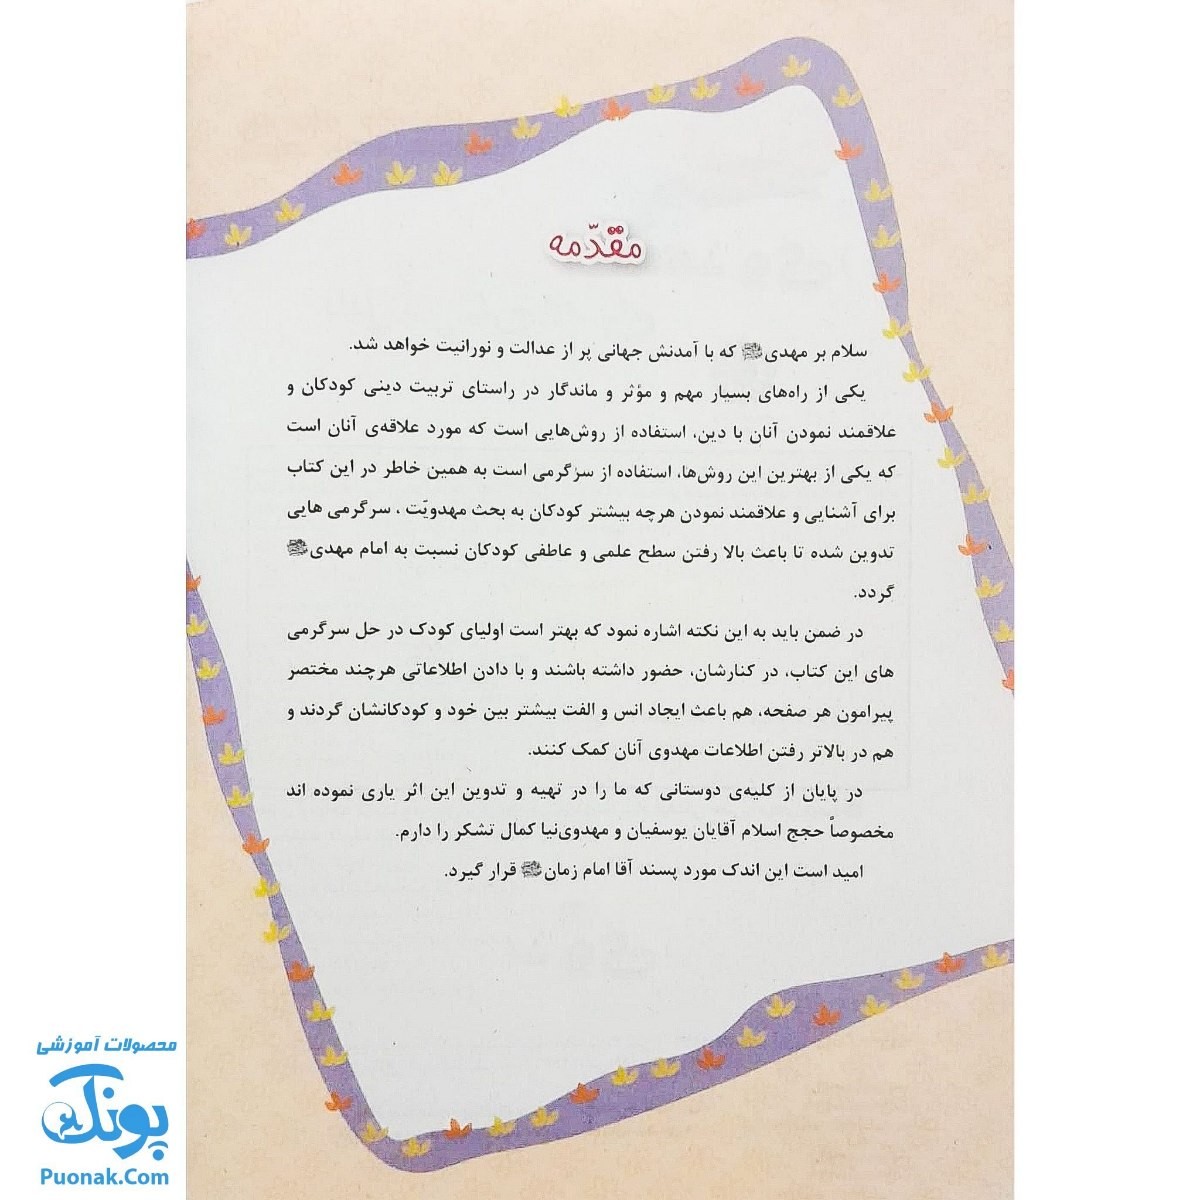 مقدّمه
سلام بر مهدی که با آمدنش جهانی پر از عدالت و نورانیت خواهد شد.
یکی از راه‌های بسیار مهم و مؤثر و ماندگار در راستای تربیت دینی کودکان و
علاقمند نمودن آنان با دین، استفاده از روش‌هایی است که مورد علاقه‌ی آنان است
که یکی از بهترین این روش‌ها، استفاده از سرگرمی است به همین خاطر در این کتاب
برای آشنایی و علاقمند نمودن هرچه بیشتر کودکان به بحث مهدویّت ، سرگرمی هایی
تدوین شده تا باعث بالا رفتن سطح علمی و عاطفی کودکان نسبت به امام مهدی
گردد.
در ضمن باید به این نکته اشاره نمود که بهتر است اولیای کودک در حل سرگرمی
های این کتاب، در کنارشان، حضور داشته باشند و با دادن اطلاعاتی هرچند مختصر
پیرامون هر صفحه، هم باعث ایجاد انس و الفت بیشتر بین خود و کودکانشان گردند و
هم در بالاتر رفتن اطلاعات مهدوی آنان کمک کنند.
در پایان از کلیه‌ی دوستانی که ما را در تهیه و تدوین این اثر یاری نموده اند
مخصوصاً حجج اسلام آقایان یوسفیان و مهدوی‌نیا کمال تشکر را دارم.
امید است این اندک مورد پسند آقا امام زمان قرار گیرد.
محصولات آموزشی
پونک
Puonak.Com